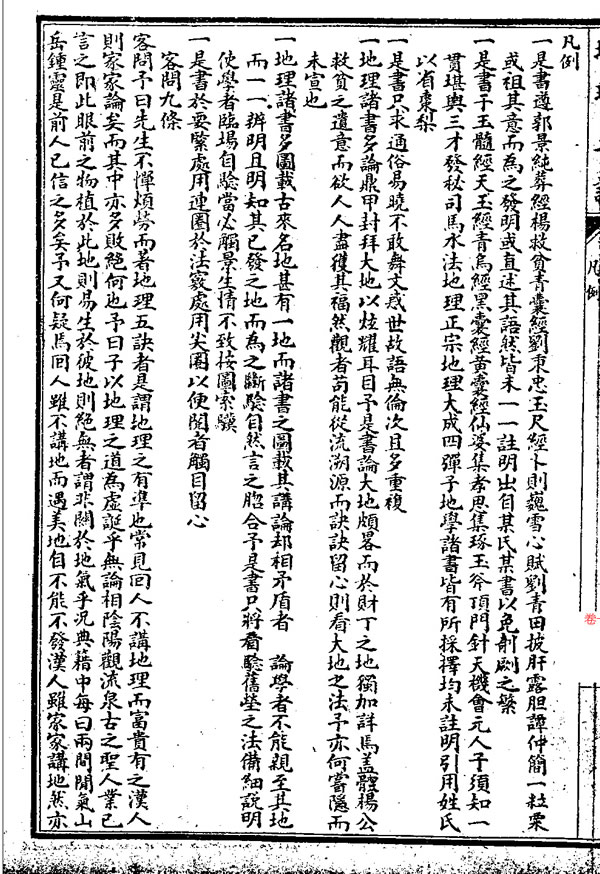 凡例
一是書遵郭景純葬經楊救貧青囊經劉秉忠玉尺經卜則巍雪心賦劉青田披肝露胆譚仲簡一粒粟
或祖其意而為之發明或直述其語然皆未一一註明出自某氏某書以免剞劂之繁
一是書于玉髓經天玉經青烏經黑囊經黃囊經仙婆集孝思集琢玉斧頂門針天機會元人子須知一
貫堪輿三才發秘司馬水法地理正宗地理大成四彈子地學諸書皆有所採擇均未註明引用姓氏
以省棗梨
一是書只求通俗易曉不敢舞文惑世故語無倫次且多重複
一地理諸書多論鼎甲封拜大地以炫耀耳目予是書論大地頗畧而於財丁之地獨加詳焉蓋體楊公
救貧之遺意而欲人人盡獲其福然觀者苟能從流溯源而訣訣留心則看大地之法予亦何嘗隱而
未宣也
一地理諸書多圖載古來名地甚有一地而諸書之圖載其講論却相矛盾者 論學者不能親至其地
而一一辨明且明如其已發之地而為之斷驗自然言之脗合予是書只將看驗舊塋之法備細說明
使學者臨場自驗當必觸景生情不致按圖索驥
一是書於要緊處用連圈於法竅處用尖圈以便閱者觸目留心
客問九條
客問予曰先生不憚煩勞而著地理五訣者是謂地理之有準也常見回人不講地理而富貴有之漢人
則家家論矣而其中亦多敗絕何也予曰子以地理之道為虛誕乎無論相陰陽觀流泉古之聖人業已
言之即此眼前之物植於此地則易生於彼地則絕無者謂非關於地氣乎況典藉中每曰兩間閒氣山
岳鍾靈是前人已信之多矣予又何疑焉回人雖不講地而遇美地自不能不發漢人雖家家講地然亦
凡例
卷一